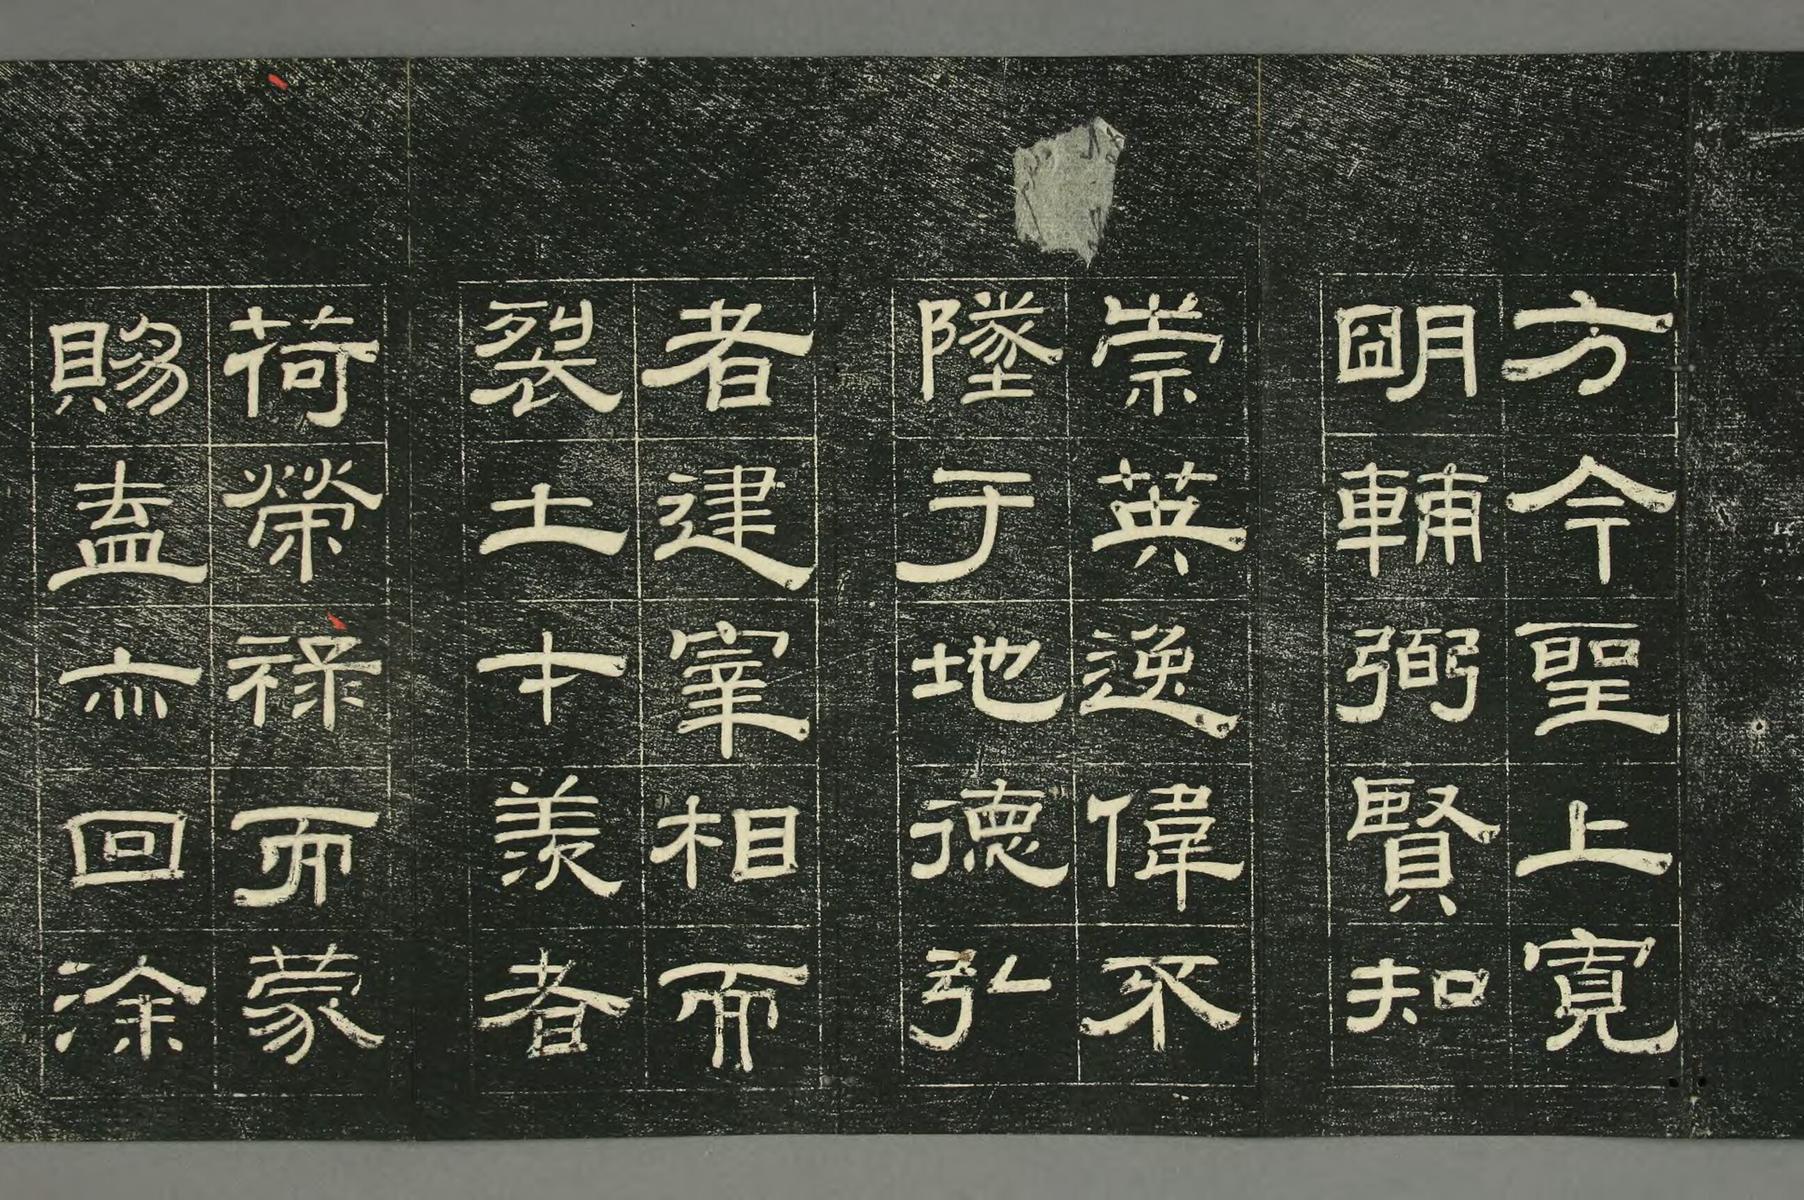 方今聖上寬
朙輔弼賢知
崇英逸偉不
墜于地德弘
者建宰相而
裂土才羨者
荷榮祿而蒙
賜盍亦回涂